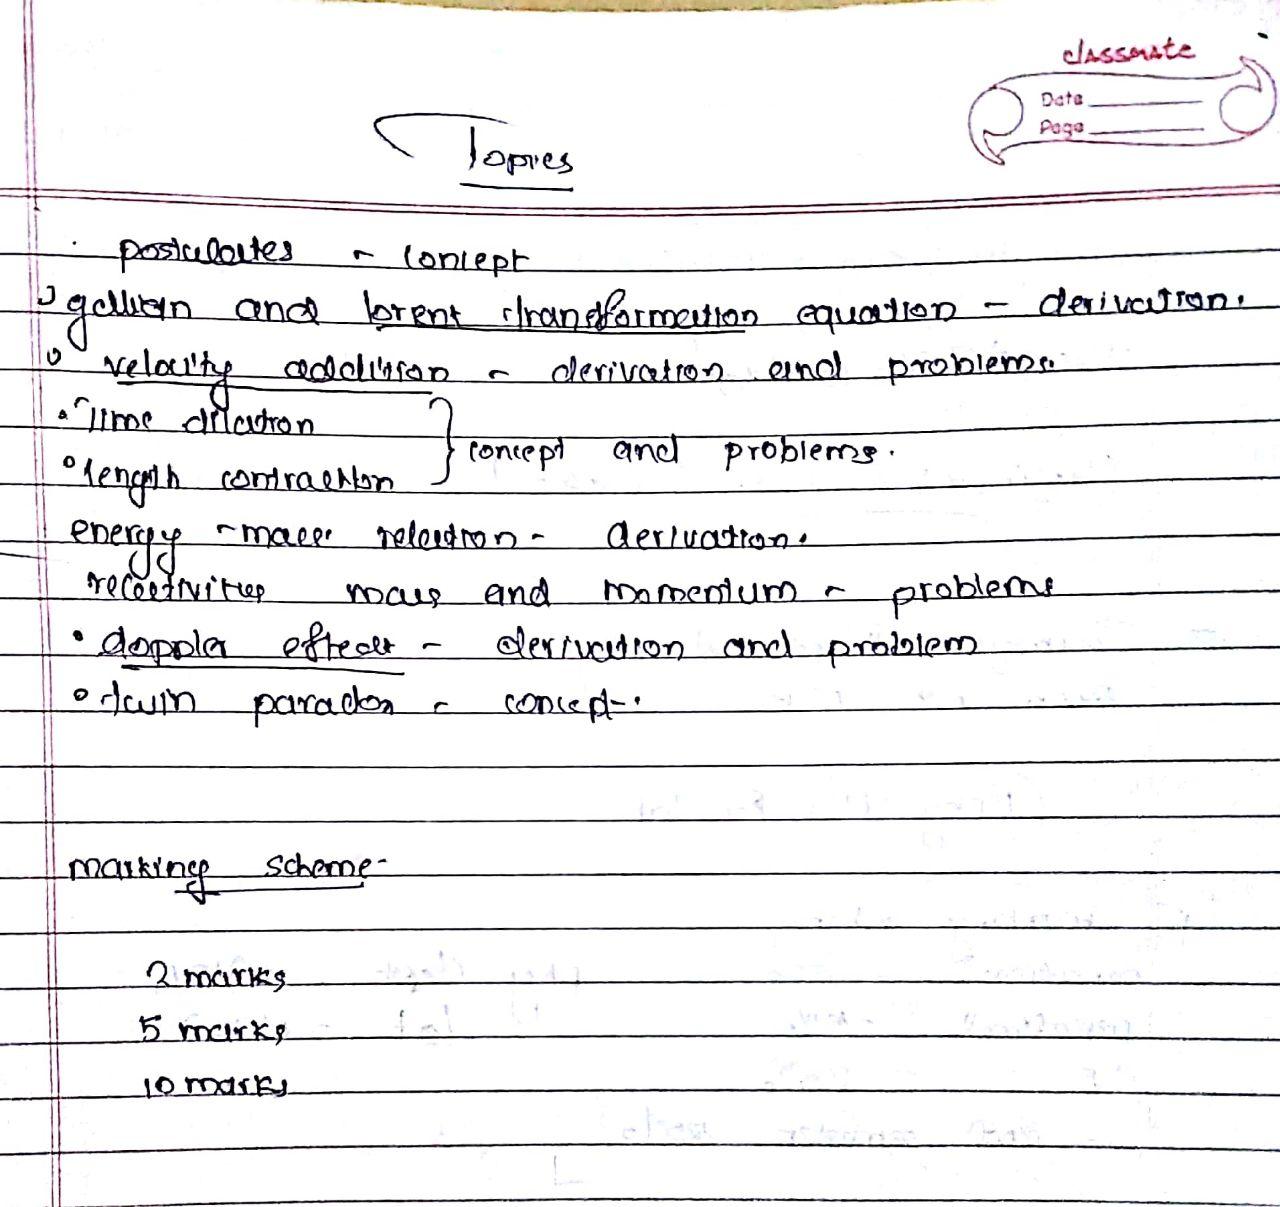 classmate
Date
Page
Topics
postulates - concept
galliean and lorent transformation equation - derivation.
velocity addition - derivation and problems.
Time dilation
concept and problems.
length contraction
energy - mass relation - derivation.
relativities mass and momentum - problems
doppler effect - derivation and problem
twin paradox - concept.
marking scheme -
2 marks
5 marks
10 marks